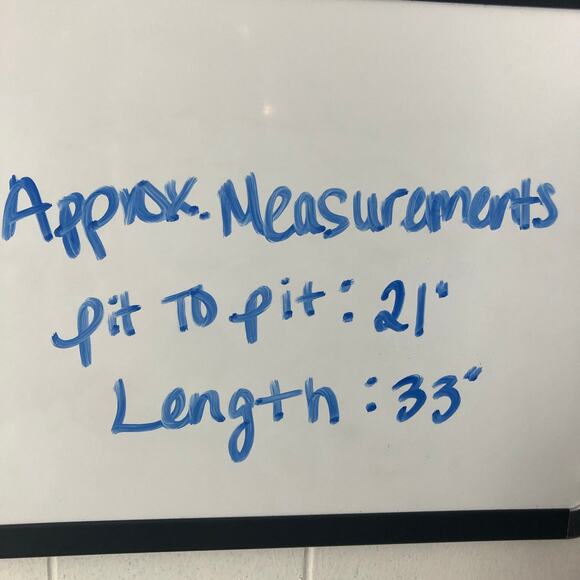 Approx. Measurements
pit To pit: 21"
Length: 33"